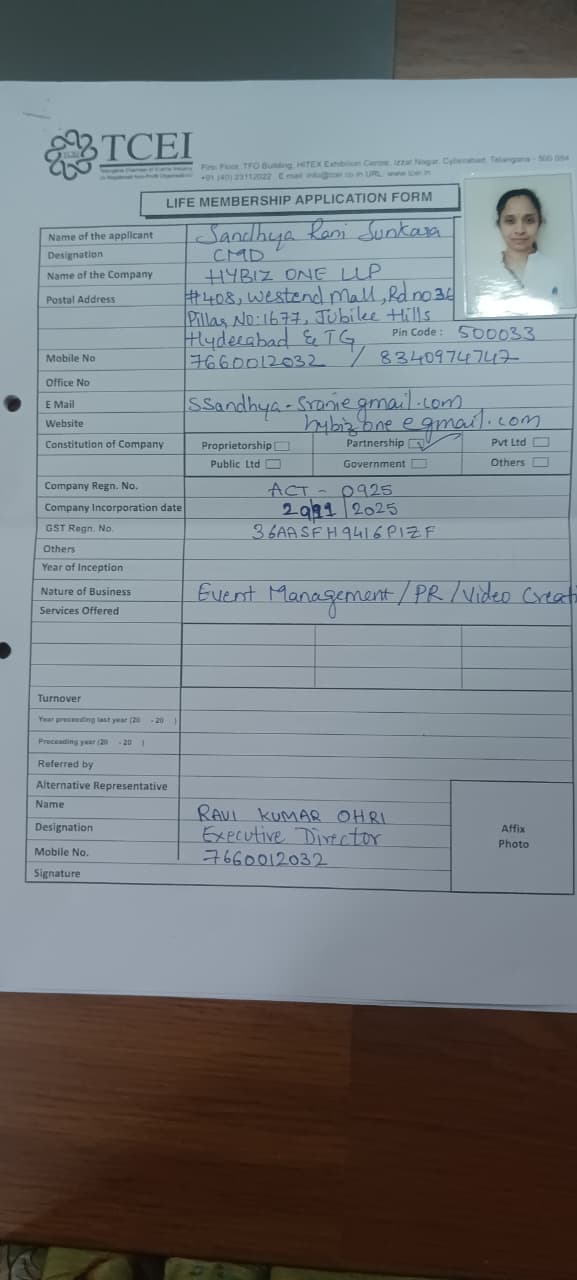 TCEI
Telangana Chamber of Events Industry
First Floor, TFO Building, HITEX Exhibition Centre, Izzat Nagar, Cyberabad, Telangana - 500 084
+91 (40) 23112022 E mail info@tcei.co.in URL: www.tcei.in
LIFE MEMBERSHIP APPLICATION FORM
Name of the applicant Sandhya Rani Sunkara
Designation CMD
Name of the Company HYBIZ ONE LLP
Postal Address #408, Westend Mall, Rd no 36
Pillar No:1677, Jubilee Hills
Hyderabad & TG Pin Code : 500033
Mobile No 7660012032 / 8340974747
Office No
E Mail SSandhya-Sranie gmail.com
Website hybizone e gmail.com
Constitution of Company Proprietorship Partnership Pvt Ltd
Public Ltd Government Others
Company Regn. No. ACT - 0925
Company Incorporation date 2025
GST Regn. No. 36AASFH9416P1ZF
Others
Year of Inception
Nature of Business Event Management / PR / Video Creati
Services Offered
Turnover
Year preceeding last year (20 - 20 )
Preceeding year (20 - 20 )
Referred by
Alternative Representative
Name RAVI KUMAR OHRI
Designation Executive Director
Mobile No. 7660012032
Signature
Affix
Photo